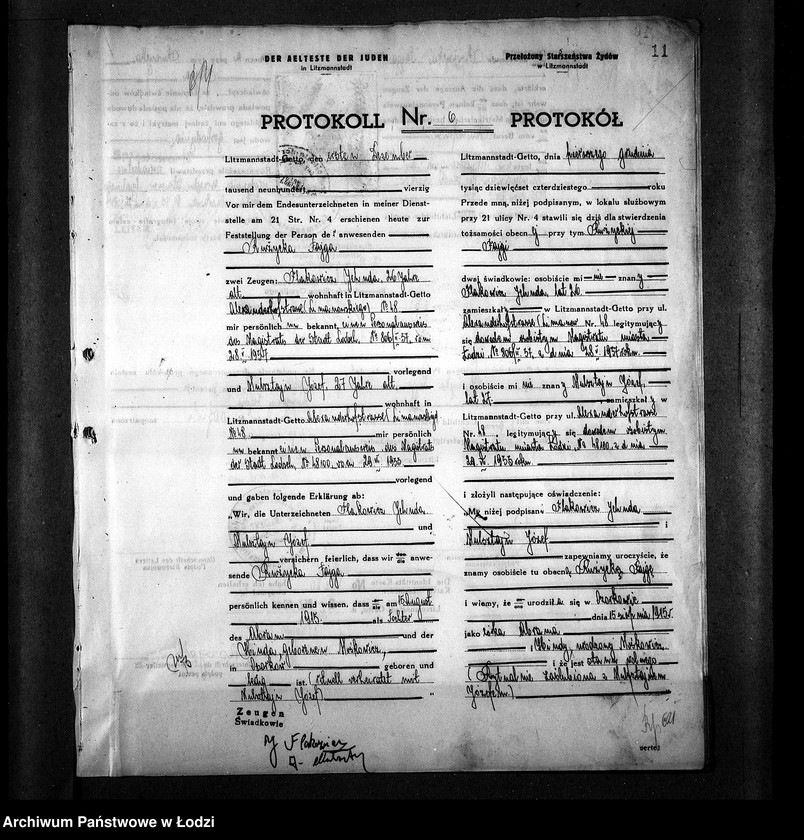 11
DER AELTESTE DER JUDEN
in Litzmannstadt
Przełożony Starszeństwa Żydów
w Litzmannstadt
PROTOKOLL Nr. 6 PROTOKÓŁ
Litzmannstadt-Getto, den ersten Dezember
tausend neunhundert vierzig
Vor mir dem Endesunterzeichneten in meiner Dienst-
stelle am 21 Str. Nr. 4 erschienen heute zur
Feststellung der Person der anwesenden
Ruzycka Fajga
zwei Zeugen: Flakowicz Jehuda, 26 Jahre
alt, wohnhaft in Litzmannstadt-Getto
Alexanderhofstrasse (Limanowskiego) № 48
mir persönlich bekannt, einen Personalausweis
des Magistrats der Stadt Lodsch, № 806/37, vom
28 1937
vorlegend
und Mulsztajn Józef, 27 Jahre alt
wohnhaft in
Litzmannstadt-Getto Alexanderhofstrasse (Limanowskiego)
№ 48 mir persönlich
bekannt einen Personalausweis des Magistrats
der Stadt Lodsch, № 48100, vom 29 1935
vorlegend
und gaben folgende Erklärung ab:
„Wir, die Unterzeichneten Flakowicz Jehuda
und
Mulsztajn Józef
versichern feierlich, dass wir die anwe-
sende Ruzycka Fajga
persönlich kennen und wissen, dass sie am 15 August
1915 als Tochter
des Abram und der
Hinda geborenen Moskowicz,
in Ozorkow geboren und
ledig ist. (rituell verheiratet mit
Mulsztajn Józef) "
Zeugen
Świadkowie
J Flakowicz
Litzmannstadt-Getto, dnia pierwszego grudnia
tysiąc dziewięćset czterdziestego roku
Przede mną, niżej podpisanym, w lokalu służbowym
przy 21 ulicy Nr. 4 stawili się dziś dla stwierdzenia
tożsamości obecnej przy tym Ruzyckiej
Fajgi
dwaj świadkowie: osobiście mi nie znany
Flakowicz Jehuda, lat 26
zamieszkały w Litzmannstadt-Getto przy ul.
Alexanderhofstrasse (Limanow. Nr. 48 legitymujący
się dowodem osobistym Magistratu miasta
Łodzi № 806/37, z dnia 28 1937 roku
i osobiście mi nie znany Mulsztajn Józef,
lat 27 zamieszkały w
Litzmannstadt-Getto przy ul. Alexanderhofstrasse
Nr. 48, legitymujący się dowodem osobistym
Magistratu miasta Łodzi, № 48100 z dnia
29 1935 roku
i złożyli następujące oświadczenie:
„My niżej podpisani Flakowicz Jehuda
i
Mulsztajn Józef
zapewniamy uroczyście, że
znamy osobiście tu obecną Ruzycką Fajgę
i wiemy, że urodziła się w Ozorkowie
dnia 15 sierpnia 1915 r.
jako córka Abrama
Hindy, urodzonej Moskowicz
i że jest stanu wolnego
(Rytualnie zaślubiona z Mulsztajnem
Józefem)
Archiwum Państwowe w Łodzi